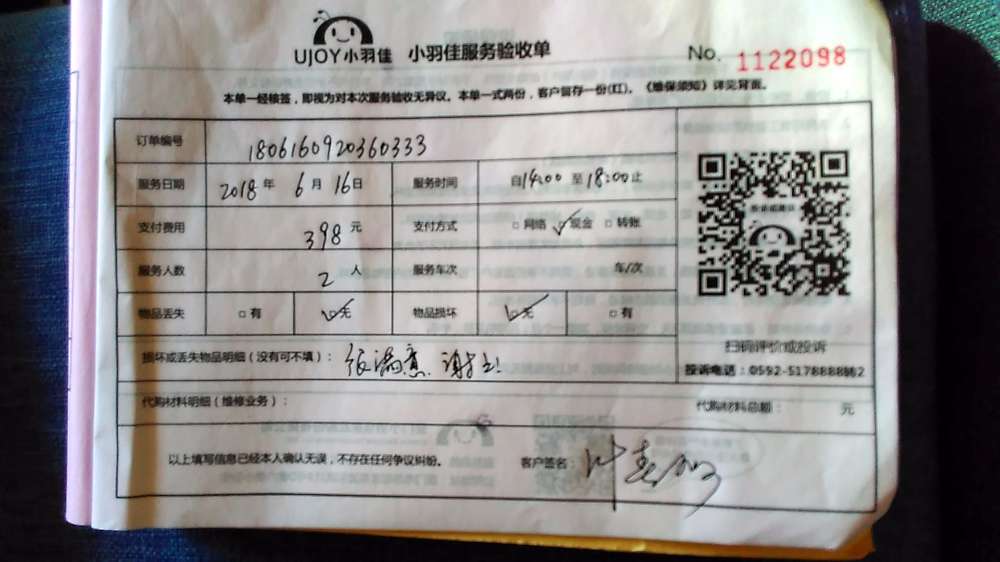 UJOY小羽佳 小羽佳服务验收单 No. 1122098
本单一经核签，即视为对本次服务验收无异议。本单一式两份，客户留存一份(红)。《维保须知》详见背面。
订单编号 1806160920360333
服务日期 2018 年 6 月 16 日 服务时间 自14:00 至 18:00止
支付费用 398 元 支付方式 □ 网络 ☑ 现金 □ 转账
服务人数 2 人 服务车次 车/次
物品丢失 □ 有 ☑ 无 物品损坏 ☑ 无 □ 有
扫码评价或投诉
损坏或丢失物品明细（没有可不填）： 很满意，谢谢!
投诉电话：0592-5178888
代购材料明细（维修业务）： 代购材料总额： 元
以上填写信息已经本人确认无误，不存在任何争议纠纷。 客户签名：